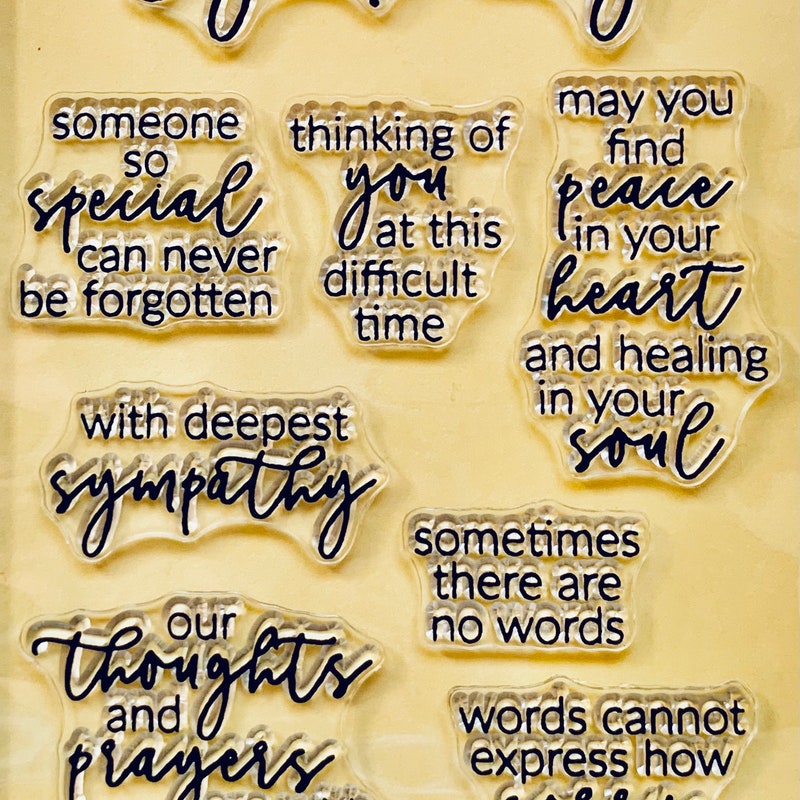 someone
so
special
can never
be forgotten
thinking of
you
at this
difficult
time
may you
find
peace
in your
heart
and healing
in your
soul
with deepest
sympathy
sometimes
there are
no words
our
thoughts
and
prayers
words cannot
express how